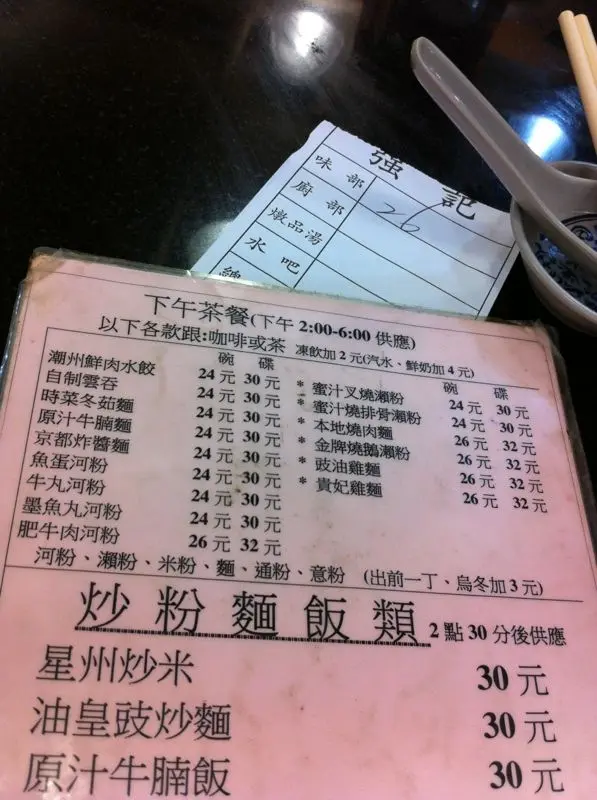 強記
味部
廚部 26
燉品湯
水吧
下午茶餐(下午 2:00-6:00 供應)
以下各款跟:咖啡或茶 凍飲加 2 元(汽水、鮮奶加 4 元)
碗 碟
潮州鮮肉水餃 24 元 30 元
自制雲吞 24 元 30 元
時菜冬茹麵 24 元 30 元
原汁牛腩麵 24 元 30 元
京都炸醬麵 24 元 30 元
魚蛋河粉 24 元 30 元
牛丸河粉 24 元 30 元
墨魚丸河粉 24 元 30 元
肥牛肉河粉 26 元 32 元
碗 碟
* 蜜汁叉燒瀨粉 24 元 30 元
* 蜜汁燒排骨瀨粉 24 元 30 元
* 本地燒肉麵 26 元 32 元
* 金牌燒鵝瀨粉 26 元 32 元
* 豉油雞麵 26 元 32 元
* 貴妃雞麵 26 元 32 元
河粉、瀨粉、米粉、麵、通粉、意粉 (出前一丁、烏冬加 3 元)
炒粉麵飯類 2 點 30 分後供應
星州炒米 30 元
油皇豉炒麵 30 元
原汁牛腩飯 30 元